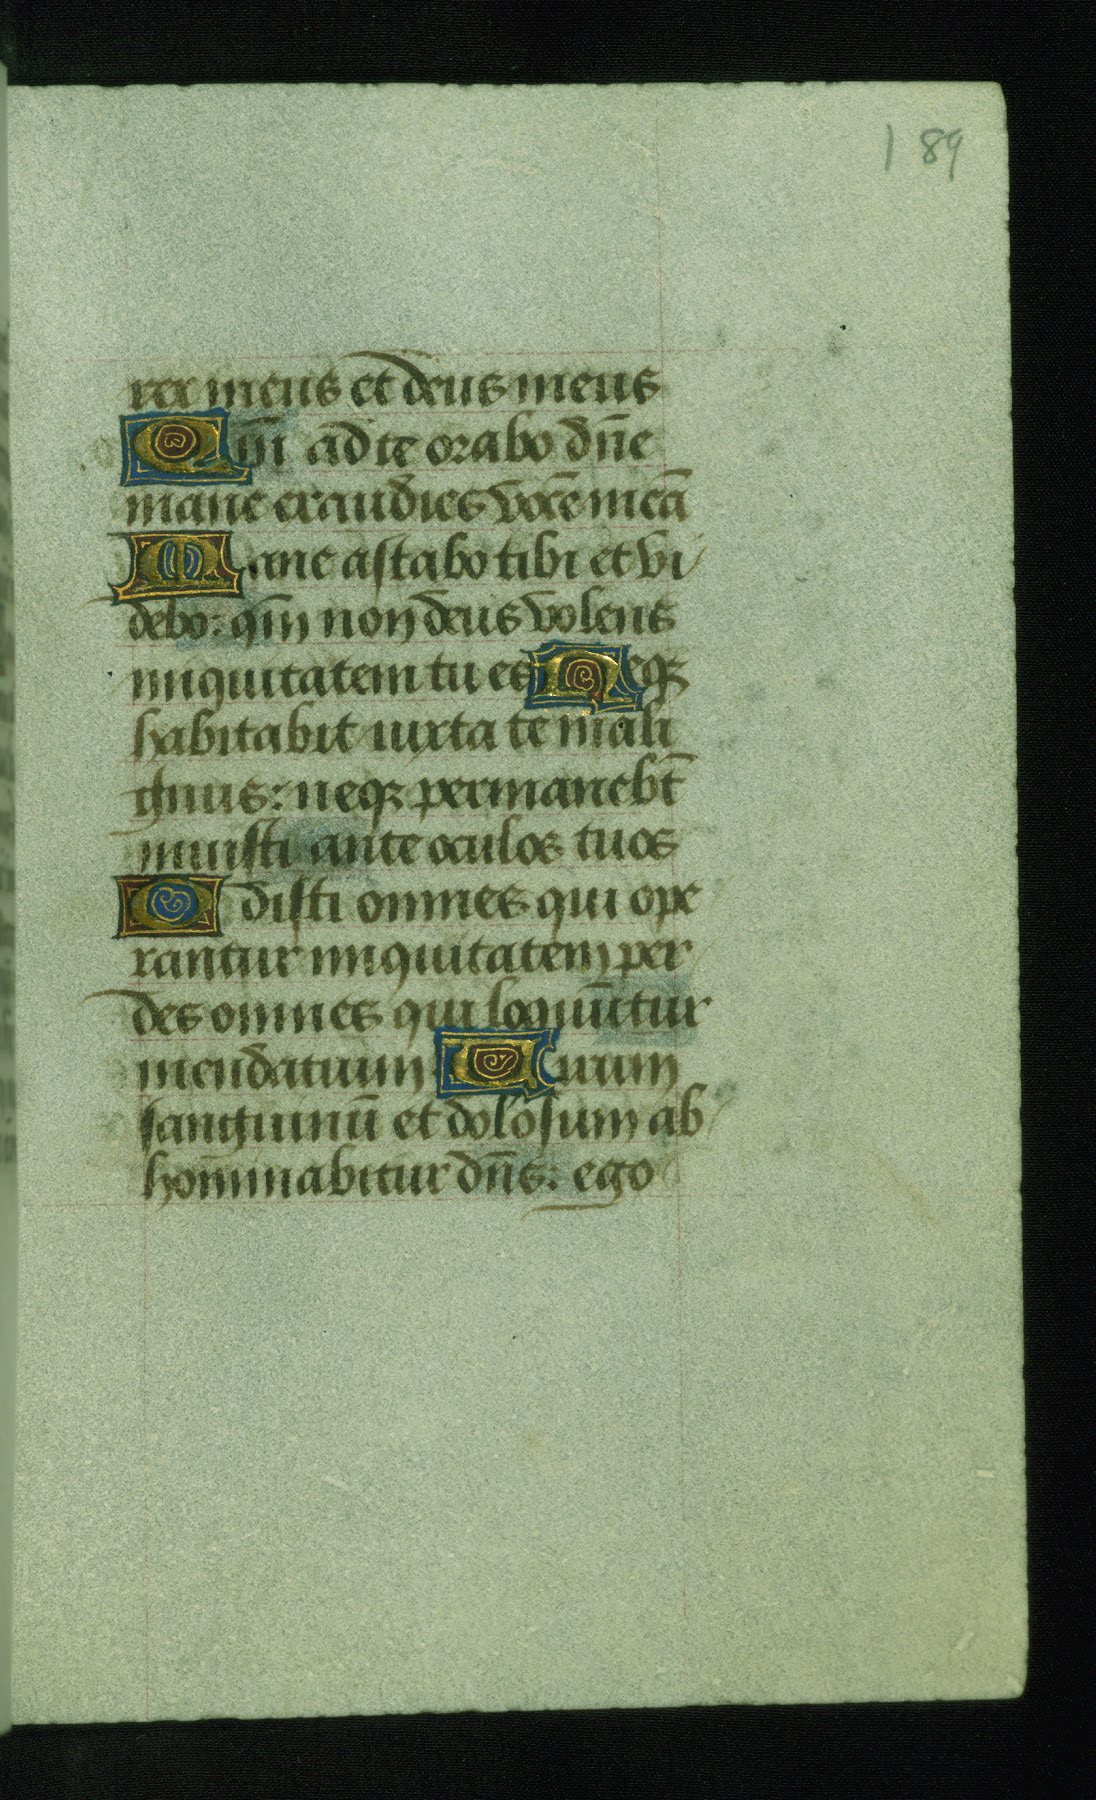 189
rex meus et deus meus
Qm̄ ad te orabo dn̄e
mane exaudies vocē meā
Mane astabo tibi et vi
debo: qm̄ non deus volens
iniquitatem tu es Neqꝫ
habitabit iuxta te mali
gnus: neqꝫ permanebt̄
iniusti ante oculos tuos
Odisti omnes qui ope
rantur iniquitatem per
des omnes qui loquūtur
mendatium Uirum
sanguinū et dolosum ab
hominabitur dn̄s: ego